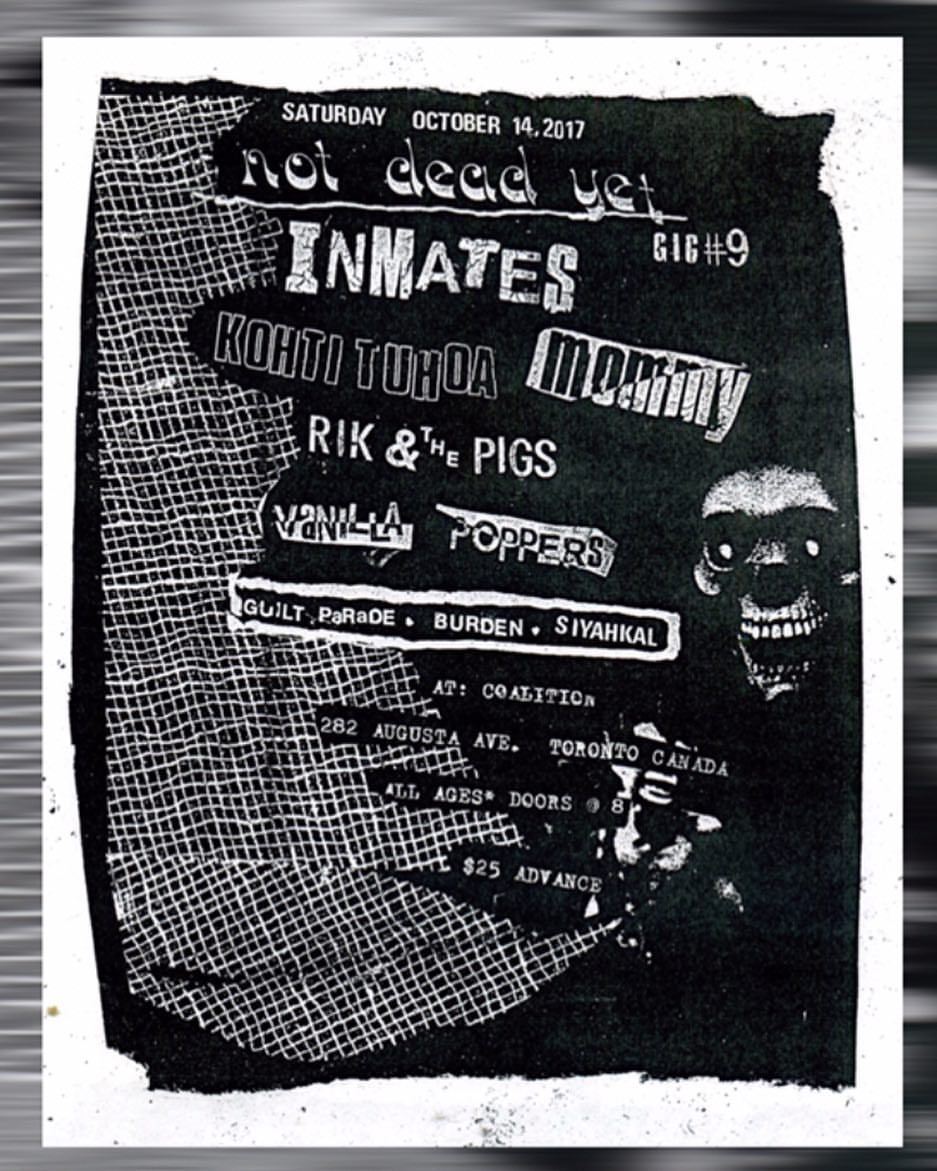 SATURDAY OCTOBER 14, 2017
not dead yet
GIG #9
INMATES
KOHTI TUHOA mommy
RIK & THE PIGS
VaNILLA POPPERS
GUILT PaRaDE • BURDEN • SIYAHKAL
AT: COALITION
282 AUGUSTA AVE. TORONTO CANADA
ALL AGES* DOORS @ 8
$25 ADVANCE